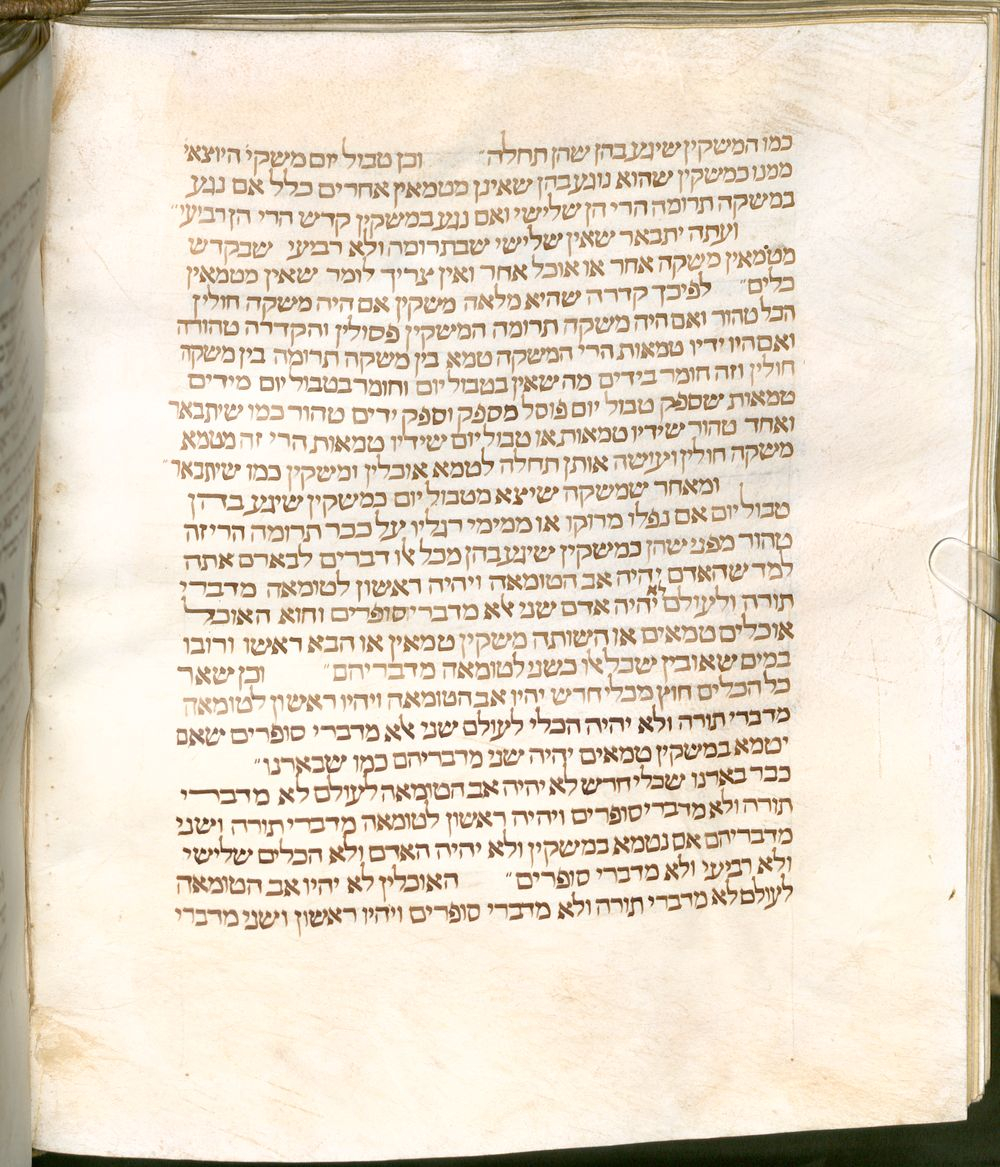 כמו המשקין שיגע בהן שהן תחלה״ וכן טבול יום משקי׳ היוצאי׳
ממנו כמשקין שהוא נוגע בהן שאינן מטמאין אחרים כלל אם נגע
במשקה תרומה הרי הן שלישי ואם נגע במשקין קדש הרי הן רביעי״
ועתה יתבאר שאין שלישי שבתרומה ולא רביעי שבקדש
מטמאין משקה אחר או אוכל אחר ואין צריך לומר שאין מטמאין
כלים״ לפיכך קדרה שהיא מלאה משקין אם היה משקה חולין
הכל טהור ואם היה משקה תרומה המשקין פסולין והקדרה טהורה
ואם היו ידיו טמאות הרי המשקה טמא בין משקה תרומה בין משקה
חולין וזה חומר בידים מה שאין בטבול יום וחומר בטבול יום מידים
טמאות שספק טבול יום פוסל מספק וספק ידים טהור כמו שיתבאר
ואחד טהור שידיו טמאות או טבול יום שידיו טמאות הרי זה מטמא
משקה חולין ועושה אותן תחלה לטמא אוכלין ומשקין כמו שיתבאר״
ומאחר שמשקה שיצא מטבול יום כמשקין שיגע בהן
טבול יום אם נפלו מרוקו או ממימי רגליו על ככר תרומה הרי זה
טהור מפני שהן כמשקין שיגע בהן מכל אלו דברים לבארם אתה
למד שהאדם יהיה אב הטומאה ויהיה ראשון לטומאה מדברי
תורה ולעולם לא יהיה אדם שני אלא מדברי סופרים והוא האוכל
אוכלים טמאים או השותה משקין טמאין או הבא ראשו ורובו
במים שאובין שכל אלו כשני לטומאה מדבריהם״ וכן שאר
כל הכלים חוץ מכלי חדש יהיו אב הטומאה ויהיו ראשון לטומאה
מדברי תורה ולא יהיה הכלי לעולם שני אלא מדברי סופרים שאם
יטמא במשקין טמאים יהיה שני מדבריהם כמו שבארנו״
כבר בארנו שכלי חדש לא יהיה אב הטומאה לעולם לא מדברי
תורה ולא מדברי סופרים ויהיה ראשון לטומאה מדברי תורה ושני
מדבריהם אם נטמא במשקין ולא יהיה האדם ולא הכלים שלישי
ולא רביעי ולא מדברי סופרים״ האוכלין לא יהיו אב הטומאה
לעולם לא מדברי תורה ולא מדברי סופרים ויהיו ראשון ושני מדברי